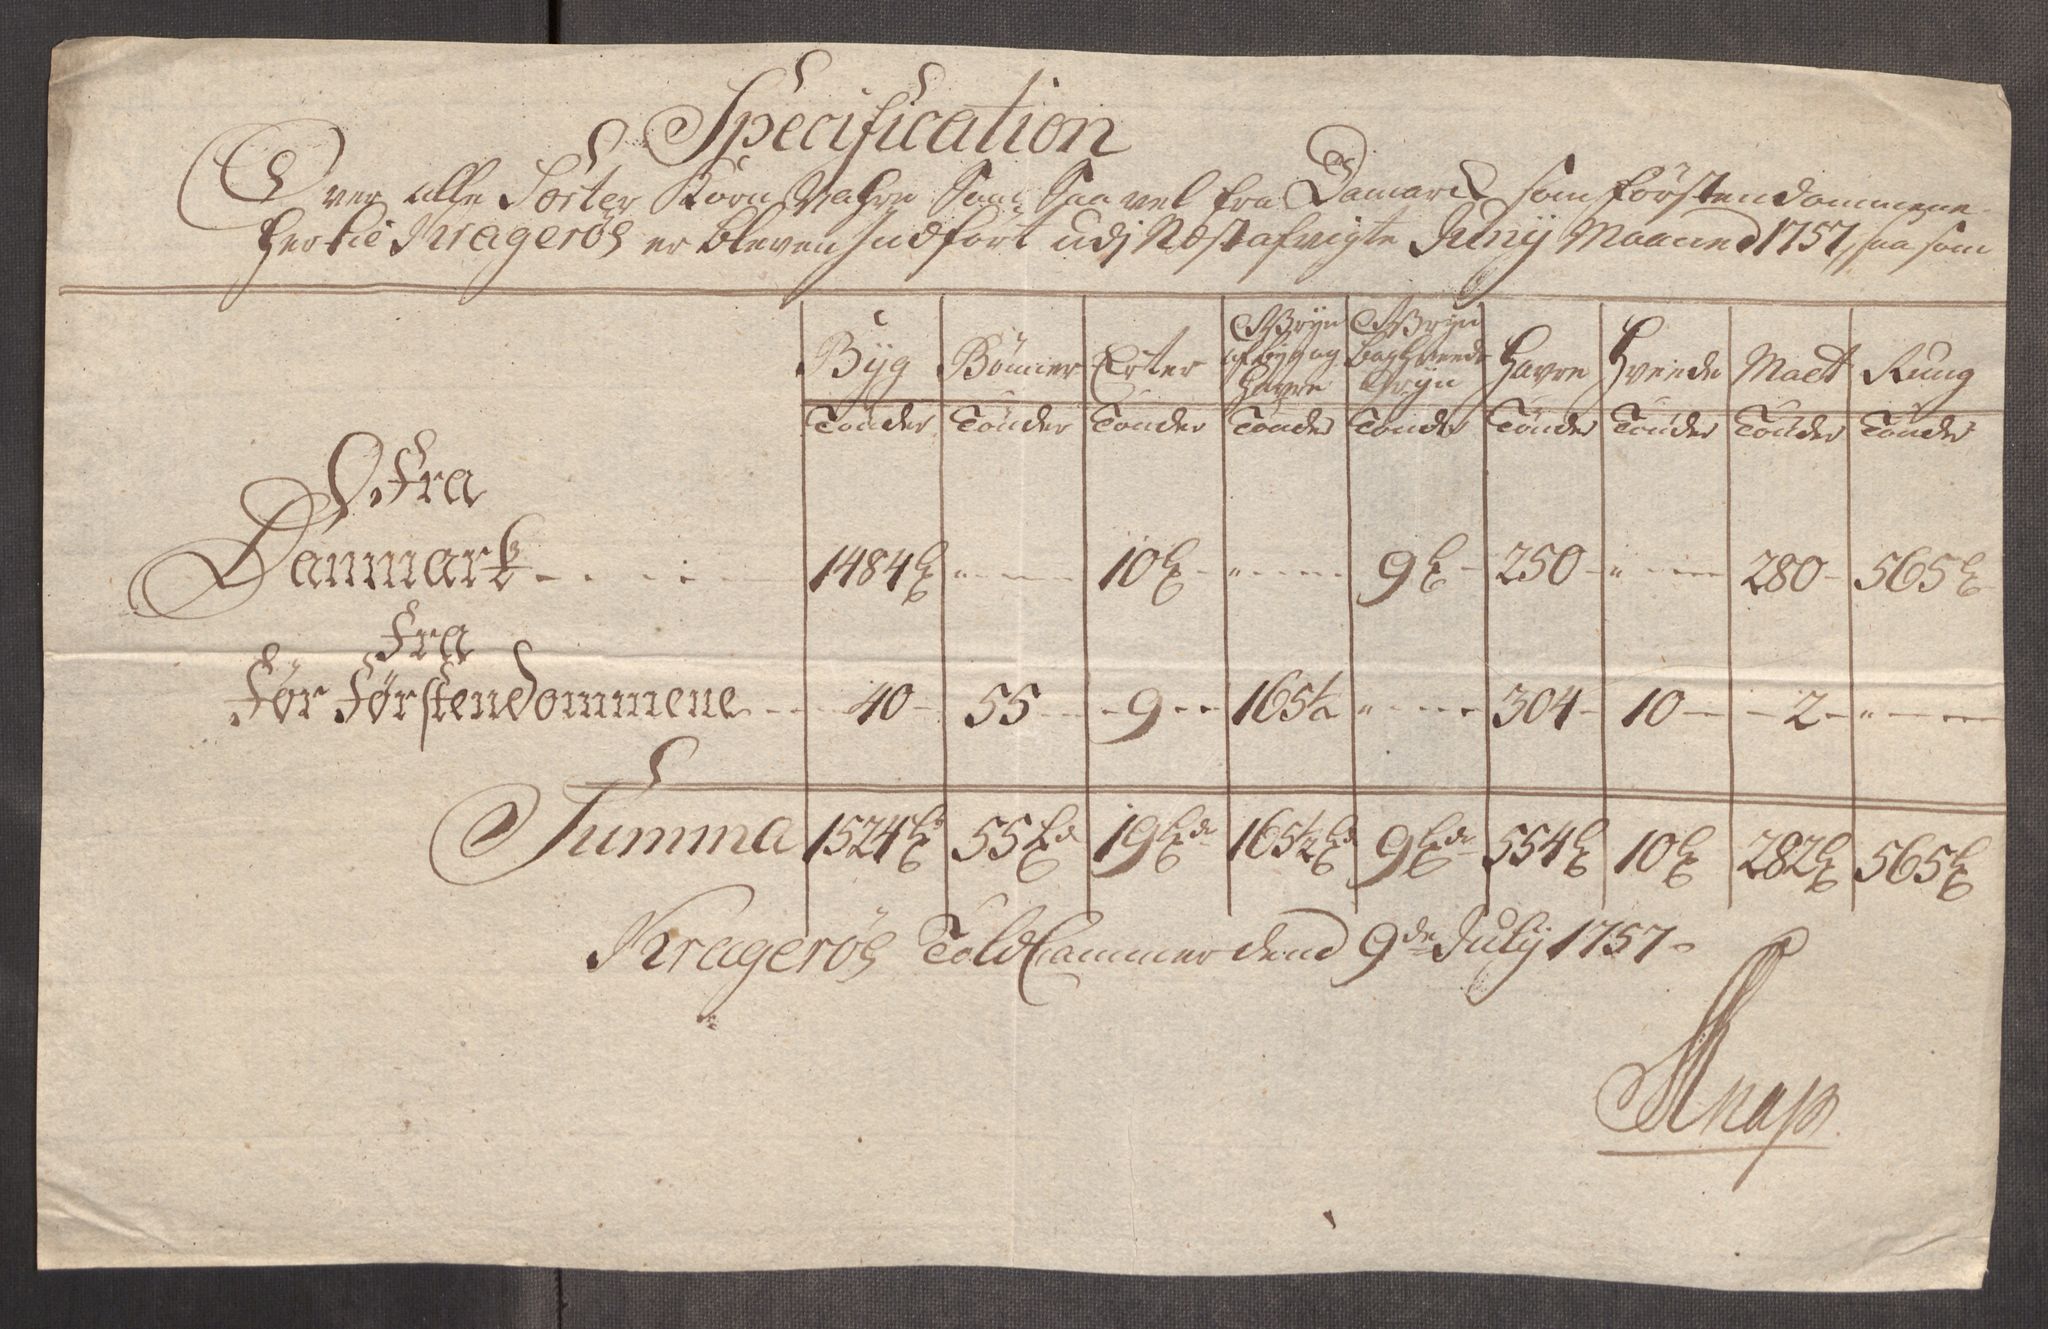 Specification
Over alle Sorter Korn Vahre Som Saavel fra Damarck som förstendommene
her til Kragerøe er bleven Indført udj Næstafvigte Junÿ Maaned 1757, saa som
Bÿg Bönner Erter Grÿn af bÿg og Havre Boghvede Grÿn Havre Hveede Maelt Rug
Tönder Tönder Tönder Tönder Tönder Tönder Tönder Tönder Tönder
Fra
Danmark 1484 10 9 250 280 565
Fra
För Förstendommene 40 55 9 165½ 304 10 2
Summa 1524 55 19 165½ 9 554 10 282 565
Kragerøe Told Cammer dend 9de Julÿ 1757
Knap